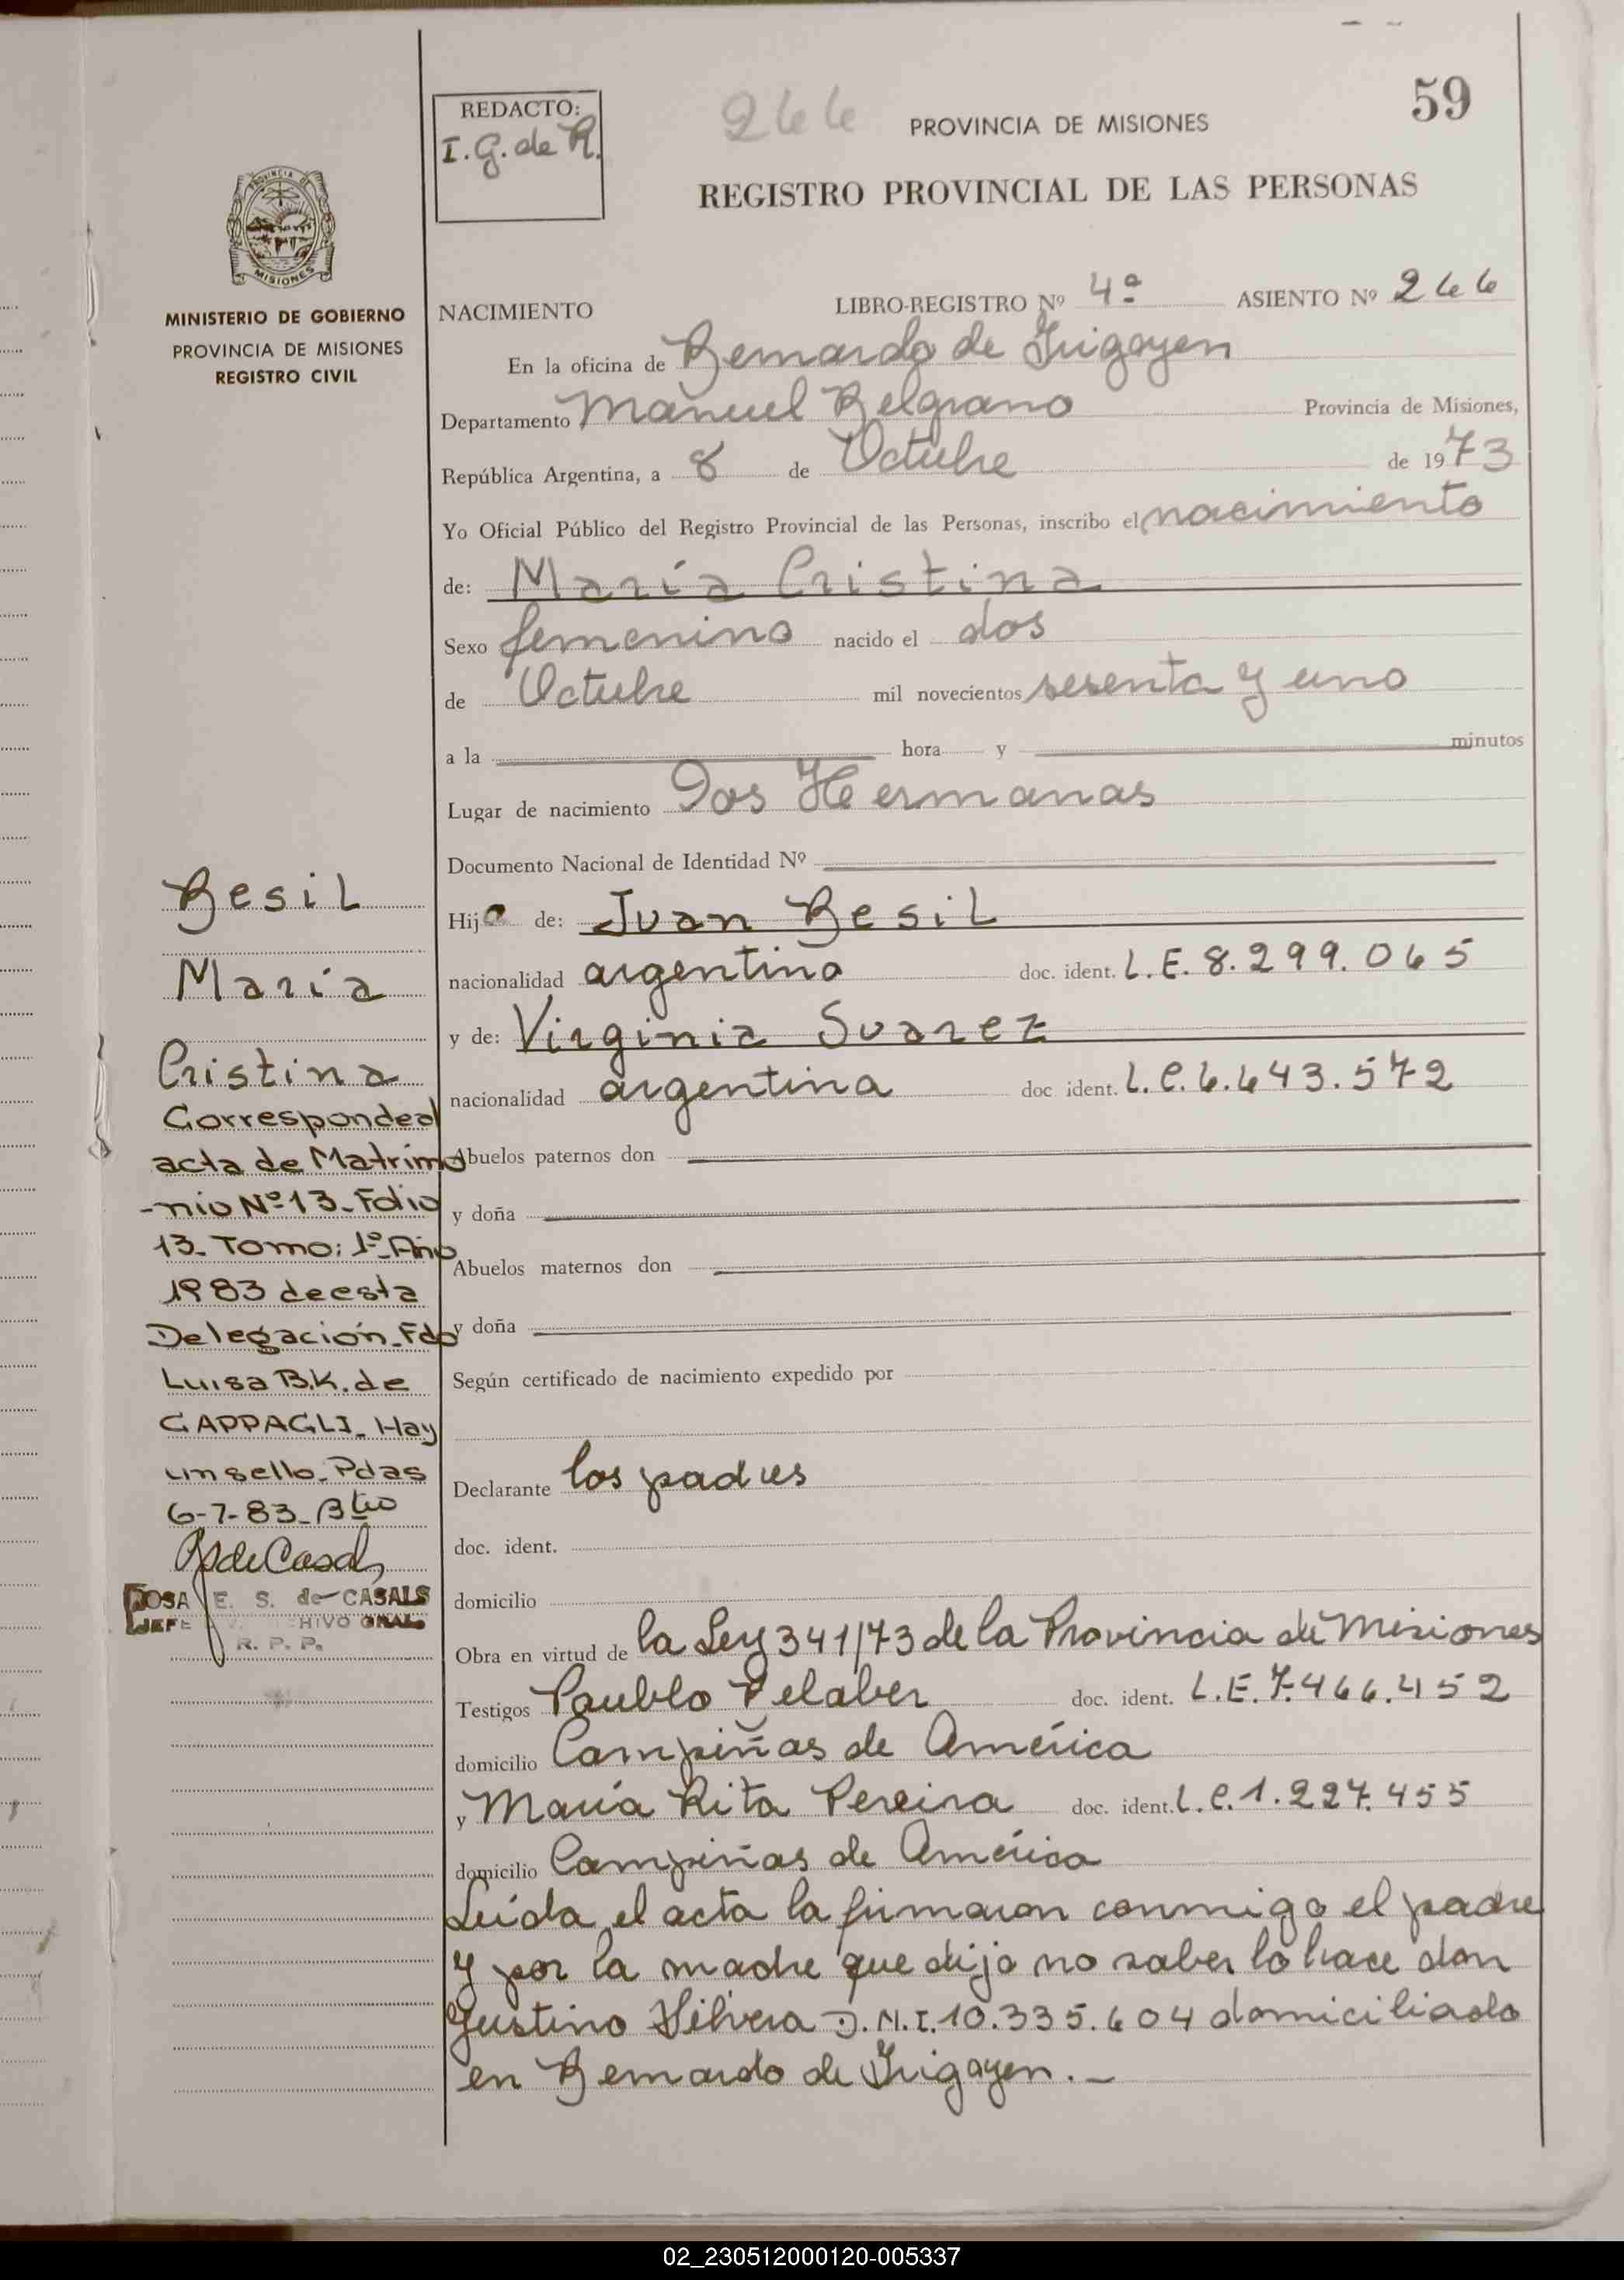 59
REDACTO:
I. G. de R.
266
PROVINCIA DE MISIONES
REGISTRO PROVINCIAL DE LAS PERSONAS
PROVINCIA DE
MISIONES
MINISTERIO DE GOBIERNO
PROVINCIA DE MISIONES
REGISTRO CIVIL
NACIMIENTO LIBRO-REGISTRO Nº 4º ASIENTO Nº 266
En la oficina de Bernardo de Irigoyen
Departamento Manuel Belgrano Provincia de Misiones,
República Argentina, a 8 de Octubre de 1973
Yo Oficial Público del Registro Provincial de las Personas, inscribo el nacimiento
de: María Cristina
Sexo femenino nacido el dos
de Octubre mil novecientos sesenta y uno
a la hora y minutos
Lugar de nacimiento Dos Hermanas
Documento Nacional de Identidad Nº
Hija de: Juan Besil
nacionalidad argentino doc. ident. L.E. 8.299.065
y de: Virginia Suarez
nacionalidad argentina doc ident. L.C. 6.643.572
Abuelos paternos don
y doña
Abuelos maternos don
y doña
Según certificado de nacimiento expedido por
Declarante los padres
doc. ident.
domicilio
Obra en virtud de la Ley 341/73 de la Provincia de Misiones
Testigos Paublo Pelaber doc. ident. L.E. 7.466.452
domicilio Campiñas de América
y María Rita Pereira doc. ident. L.C. 1.227.455
domicilio Campiñas de América
Leída el acta la firmaron conmigo el padre
y por la madre que dijo no saber lo hace don
Justino Silvera D.N.I. 10.335.604 domiciliado
en Bernardo de Irigoyen.-
Besil
María
Cristina
Corresponde al
acta de Matrimo
-nio Nº 13. Folio
13. Tomo: 1º. Año
1983 de esta
Delegación. Fdo
Luisa B.K. de
CAPPAGLI. Hay
un sello. Pdas
6-7-83.
ROSA E. S. de CASALS
JEFE HIVO GRAL.
R. P. P.
02_230512000120-005337